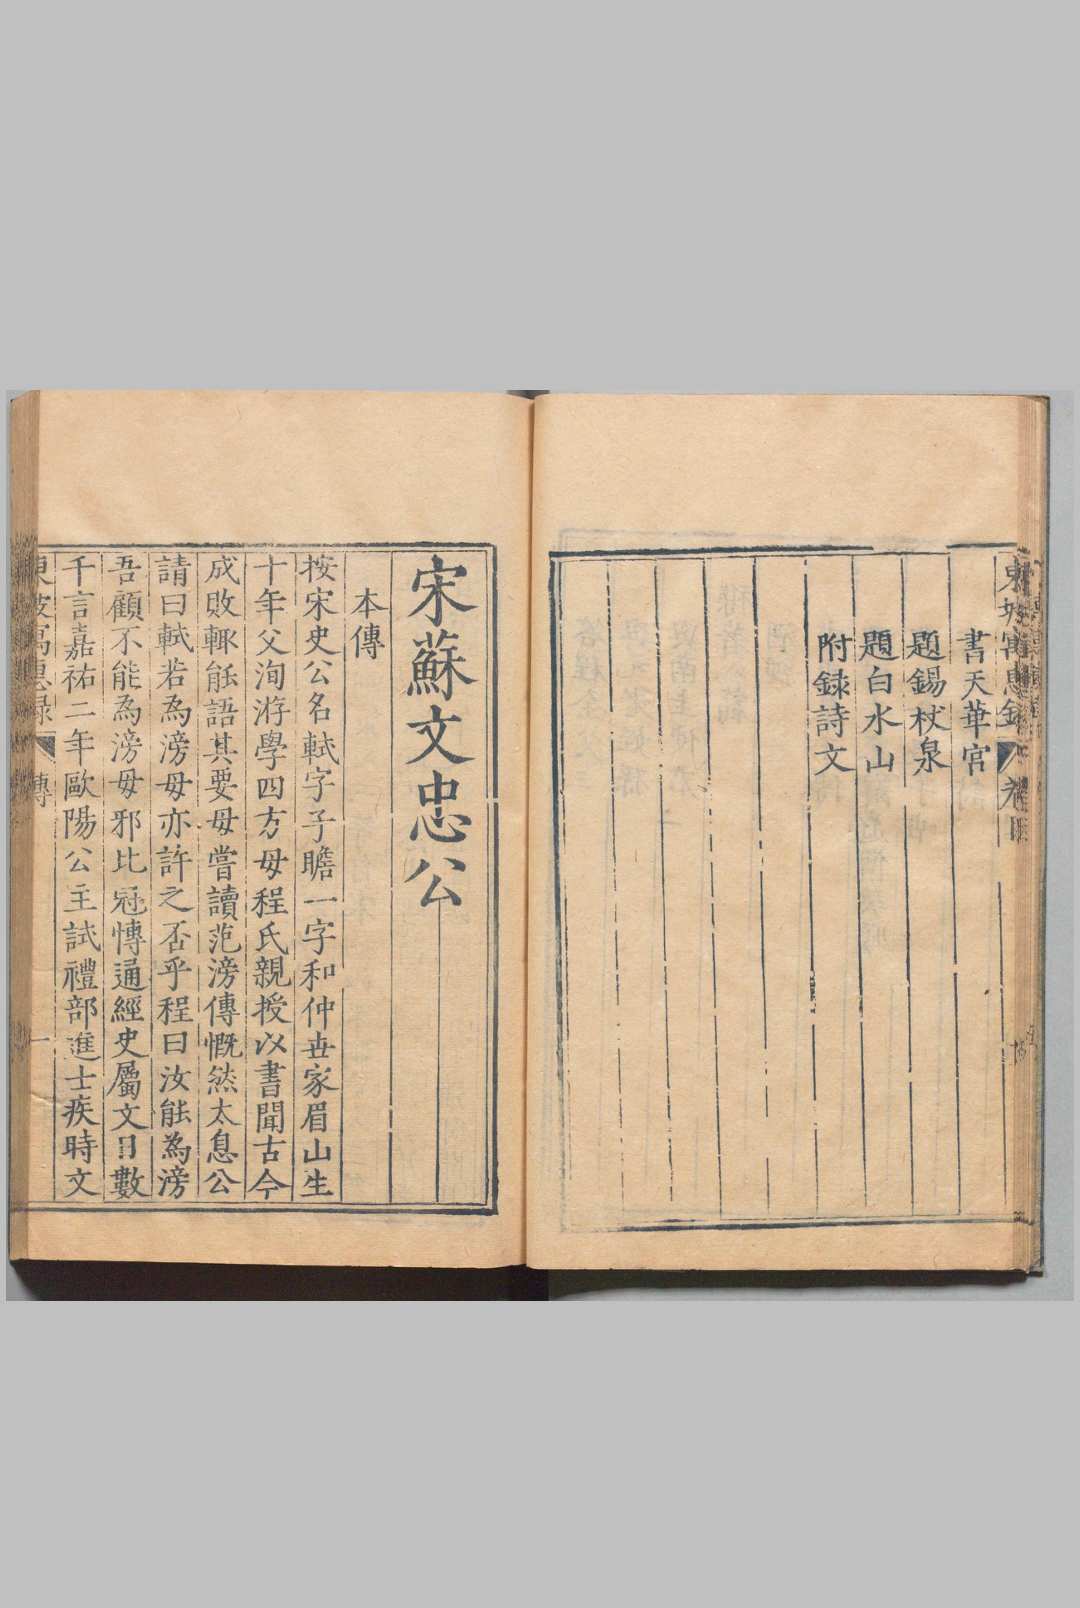 書天華宮
題錫杖泉
題白水山
附録詩文
宋蘇文忠公
本傳
按宋史公名軾字子瞻一字和仲世家眉山生
十年父洵游學四方母程氏親授以書聞古今
成敗輒能語其要母嘗讀范滂傳慨然太息公
請曰軾若為滂母亦許之否乎程曰汝能為滂
吾顧不能為滂母邪比冠慱通經史屬文日數
千言嘉祐二年歐陽公主試禮部進士疾時文
東坡寓惠録 傳 一